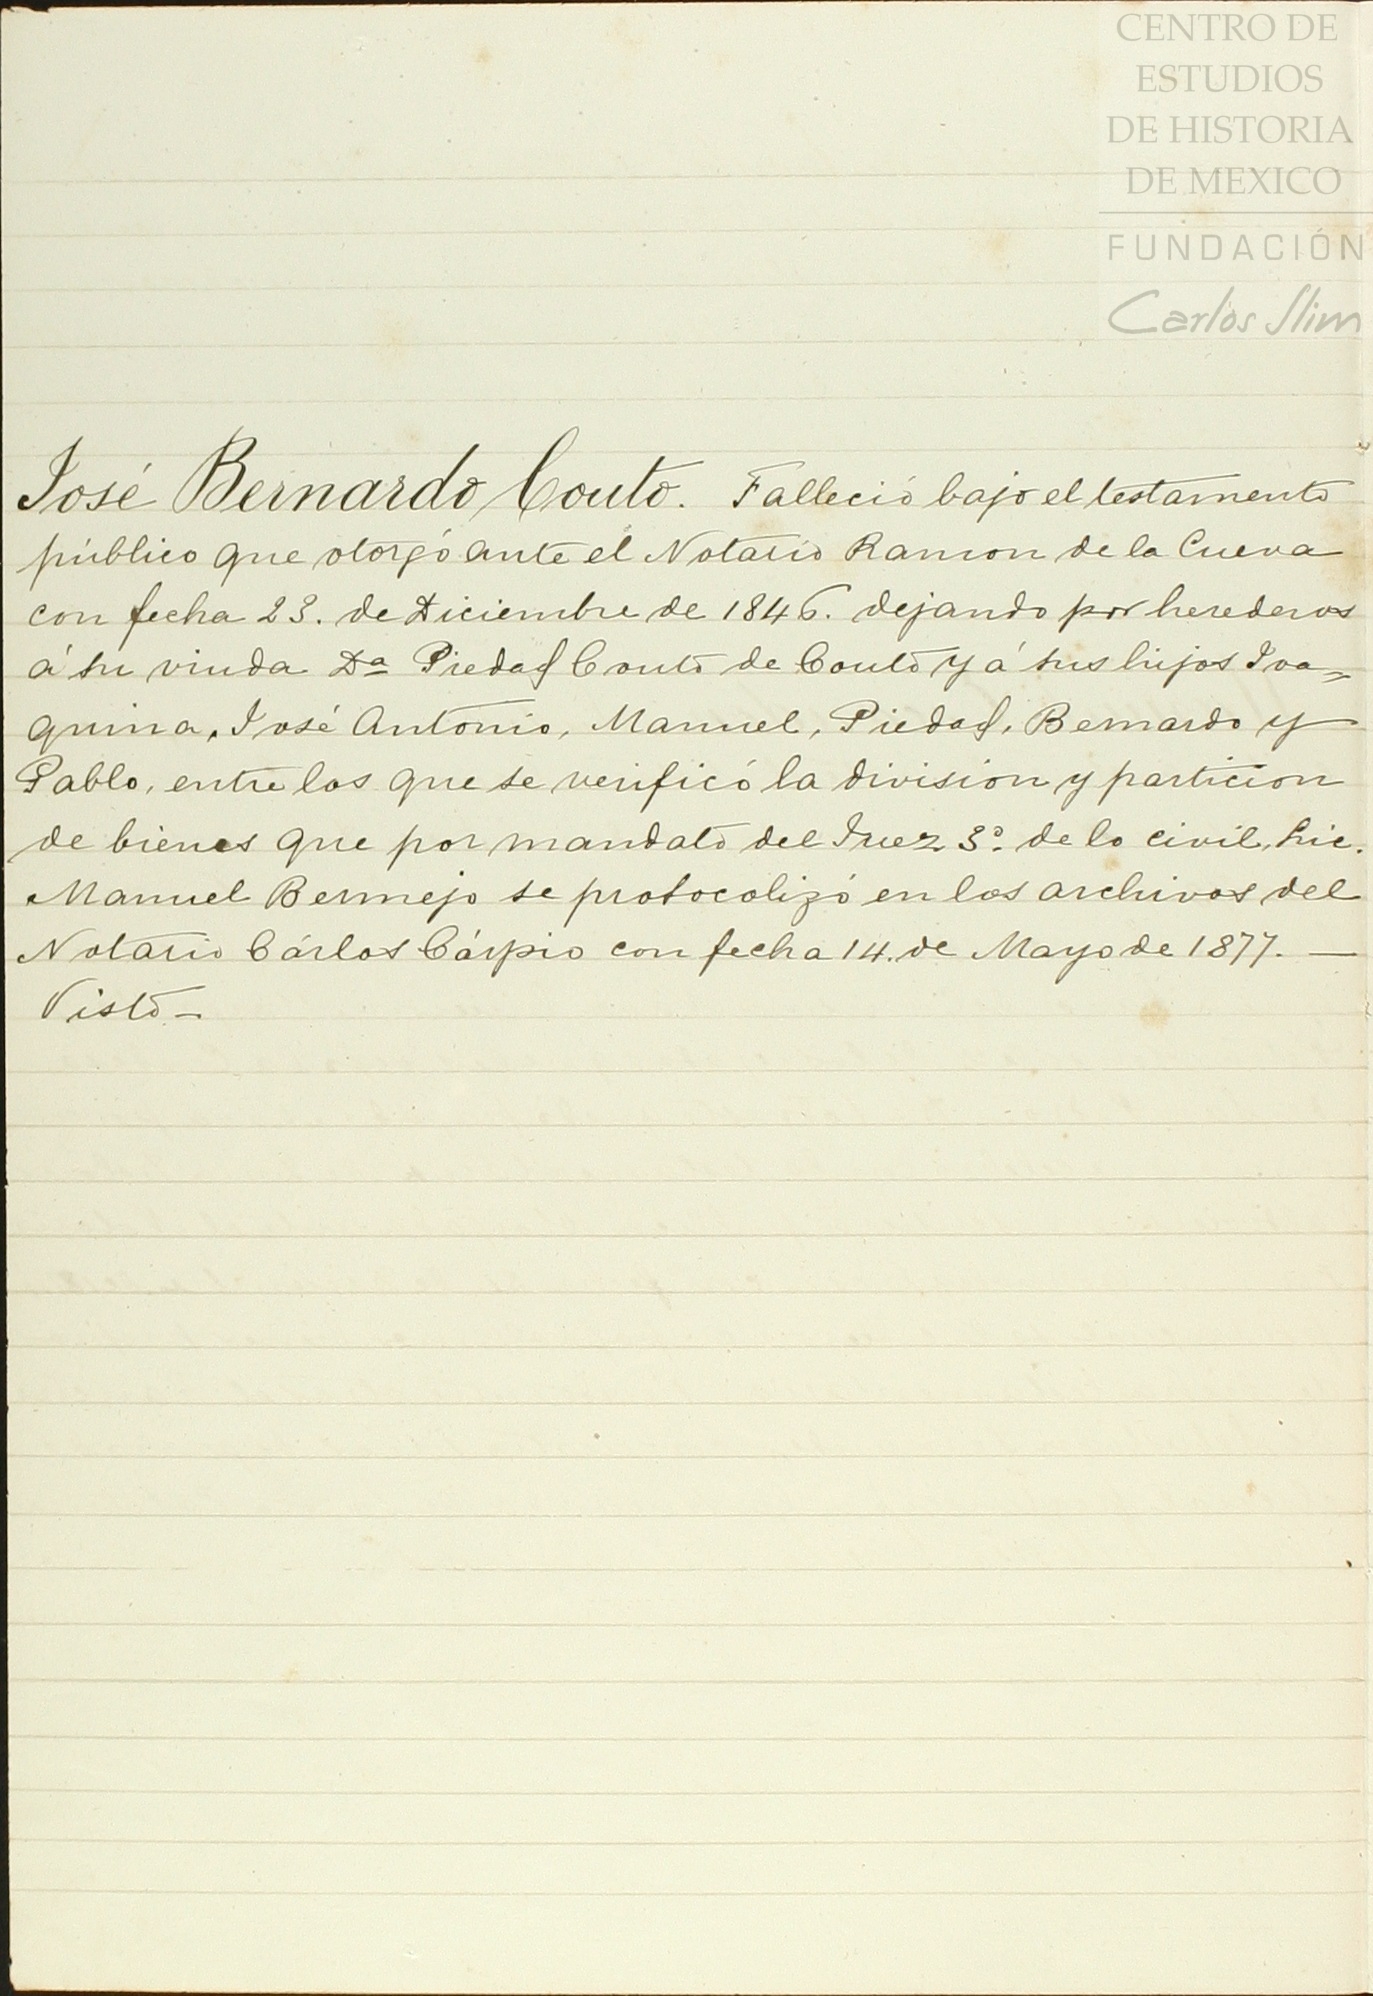 CENTRO DE
ESTUDIOS
DE HISTORIA
DE MEXICO
FUNDACIÓN
Carlos Slim
José Bernardo Couto. Falleció bajo el testamento
público que otorgó ante el Notario Ramon de la Cueva
con fecha 23. de Diciembre de 1846. dejando por herederos
á su viuda Da Piedad Couto de Couto y á sus hijos Joa=
quina, José Antonio, Manuel, Piedad, Bernardo y
Pablo, entre los que se verificó la division y particion
de bienes que por mandato del Juez 3º de lo civil, Lic.
Manuel Bermejo se protocolizó en los archivos del
Notario Cárlos Cárpio con fecha 14. de Mayo de 1877. —
Visto —